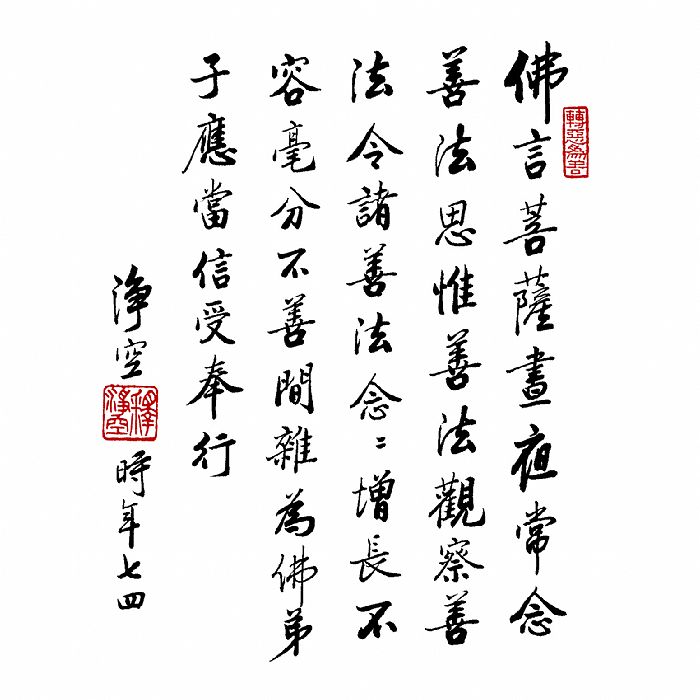 佛言菩薩晝夜常念
轉惡為善
善法思惟善法觀察善
法令諸善法念〻增長不
容毫分不善間雜為佛弟
子應當信受奉行
淨空
釋淨空
時年七四